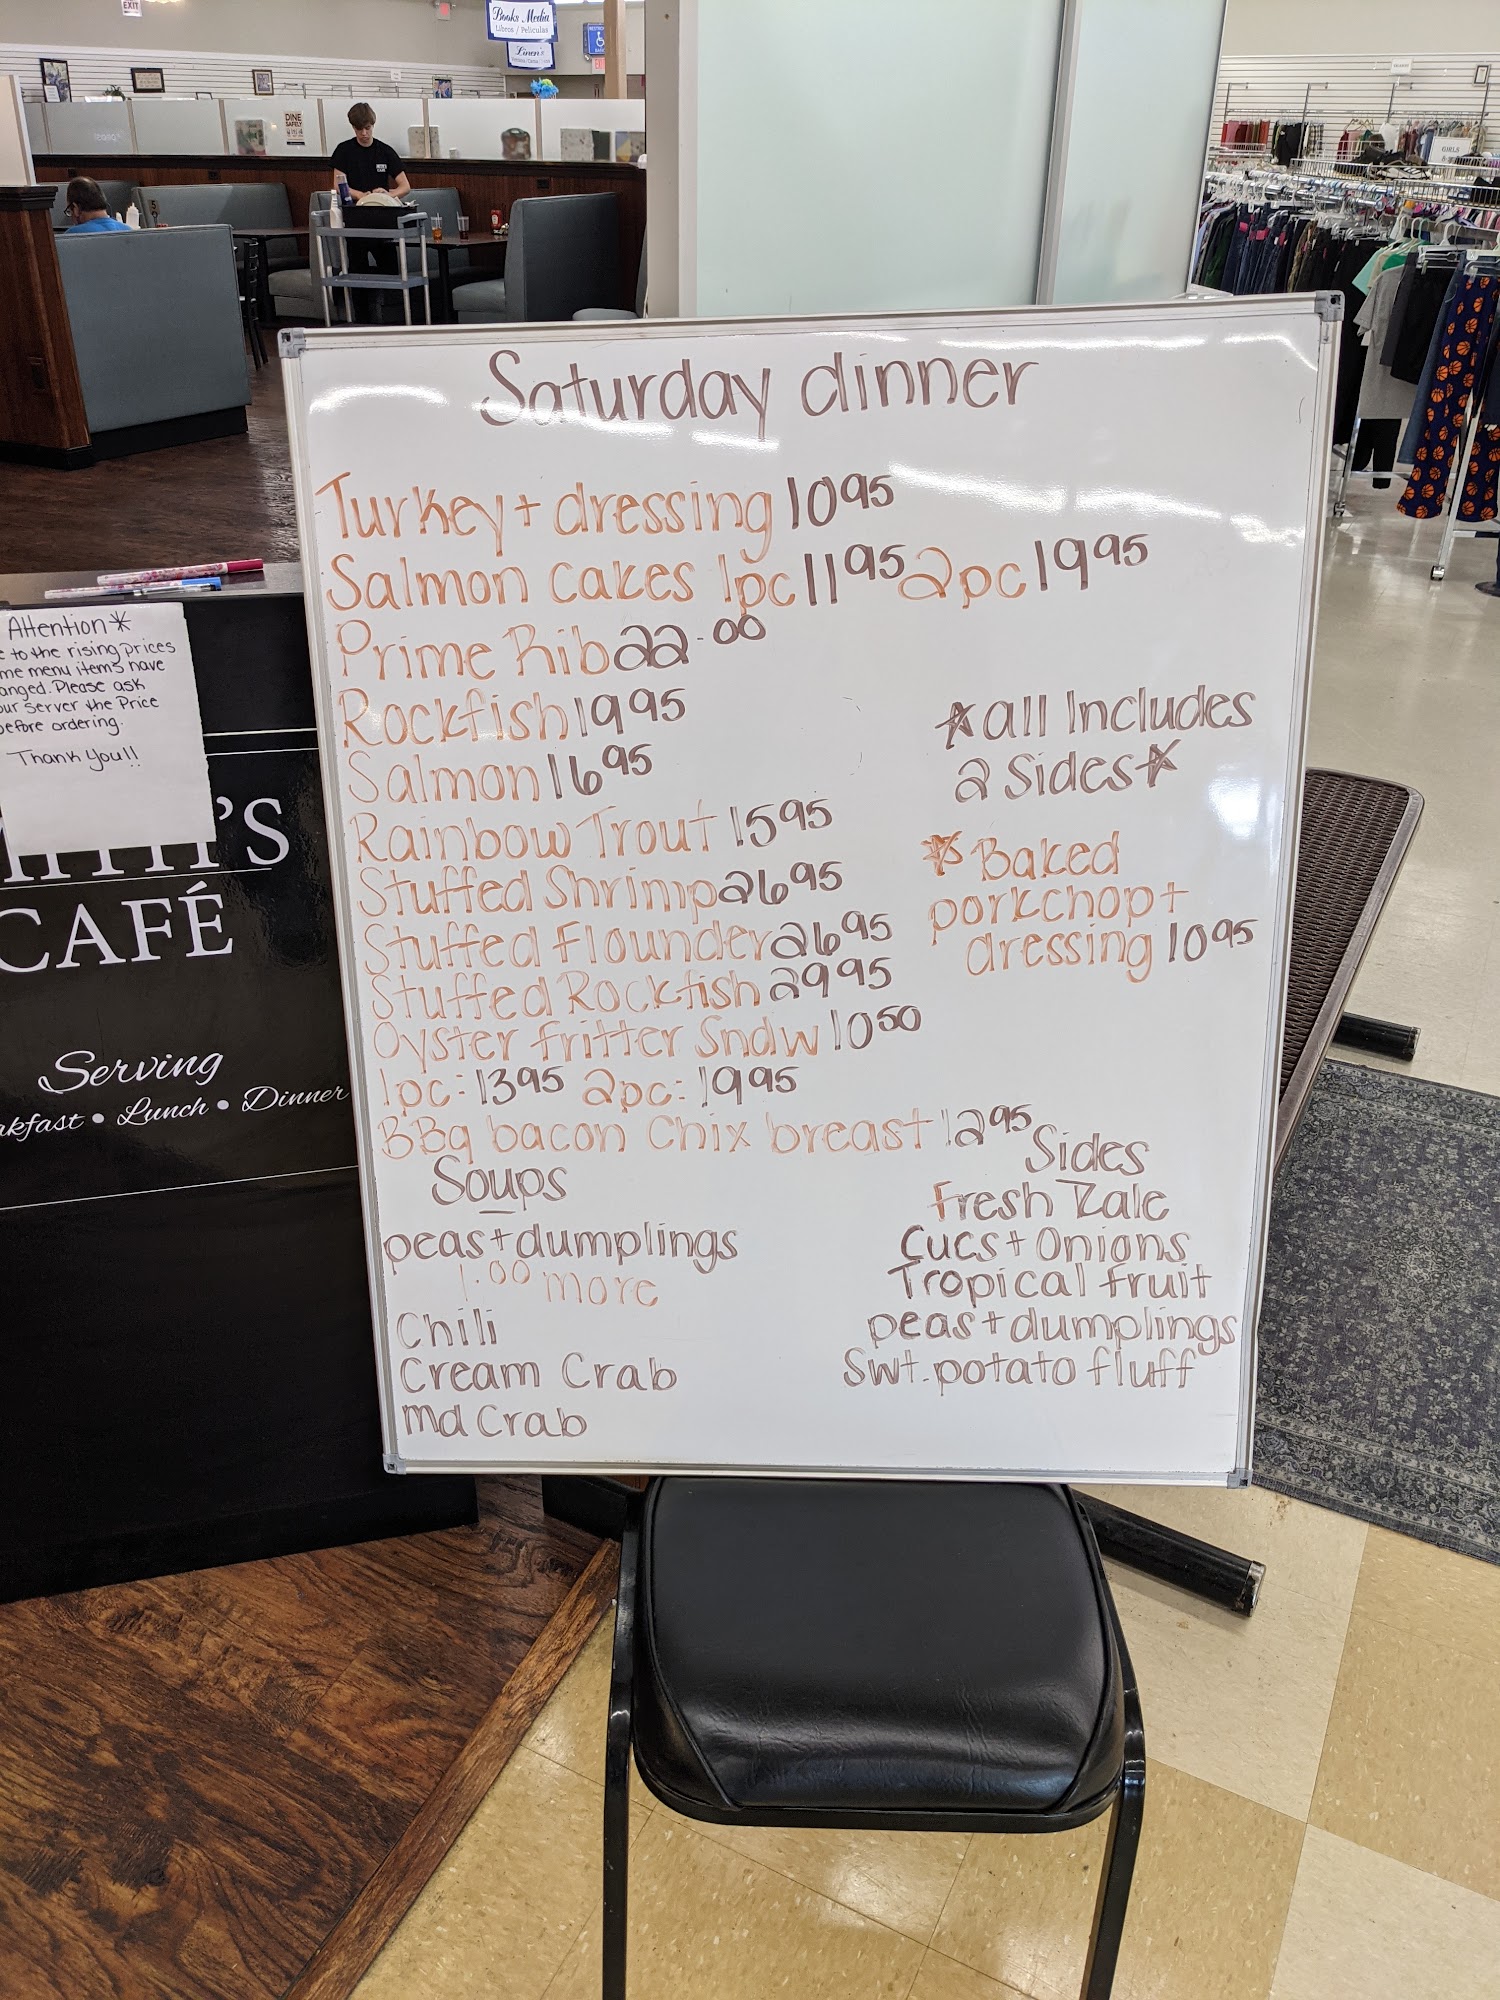 EXIT
Books Media
Libros / Peliculas
Linen's
DINE
SAFELY
GIRLS
5
Saturday dinner
Turkey + dressing 10 95
Salmon cakes 1pc 11 95 2pc 19 95
Prime Rib 22.00
Rockfish 19 95
Salmon 16 95
Rainbow Trout 15 95
Stuffed Shrimp 26 95
Stuffed Flounder 26 95
Stuffed Rockfish 29 95
Oyster fritter Sndw 10 50
1pc: 13 95 2pc: 19 95
BBq bacon Chix breast 12 95
*all Includes
2 Sides*
*Baked
porkchop +
dressing 10 95
Soups
peas + dumplings
1.00 more
Chili
Cream Crab
Md Crab
Sides
Fresh Kale
Cucs + Onions
Tropical fruit
peas + dumplings
Swt. potato fluff
Attention*
e to the rising prices
me menu items have
anged. Please ask
our server the Price
before ordering.
Thank You!!
'S
CAFÉ
Serving
akfast • Lunch • Dinner